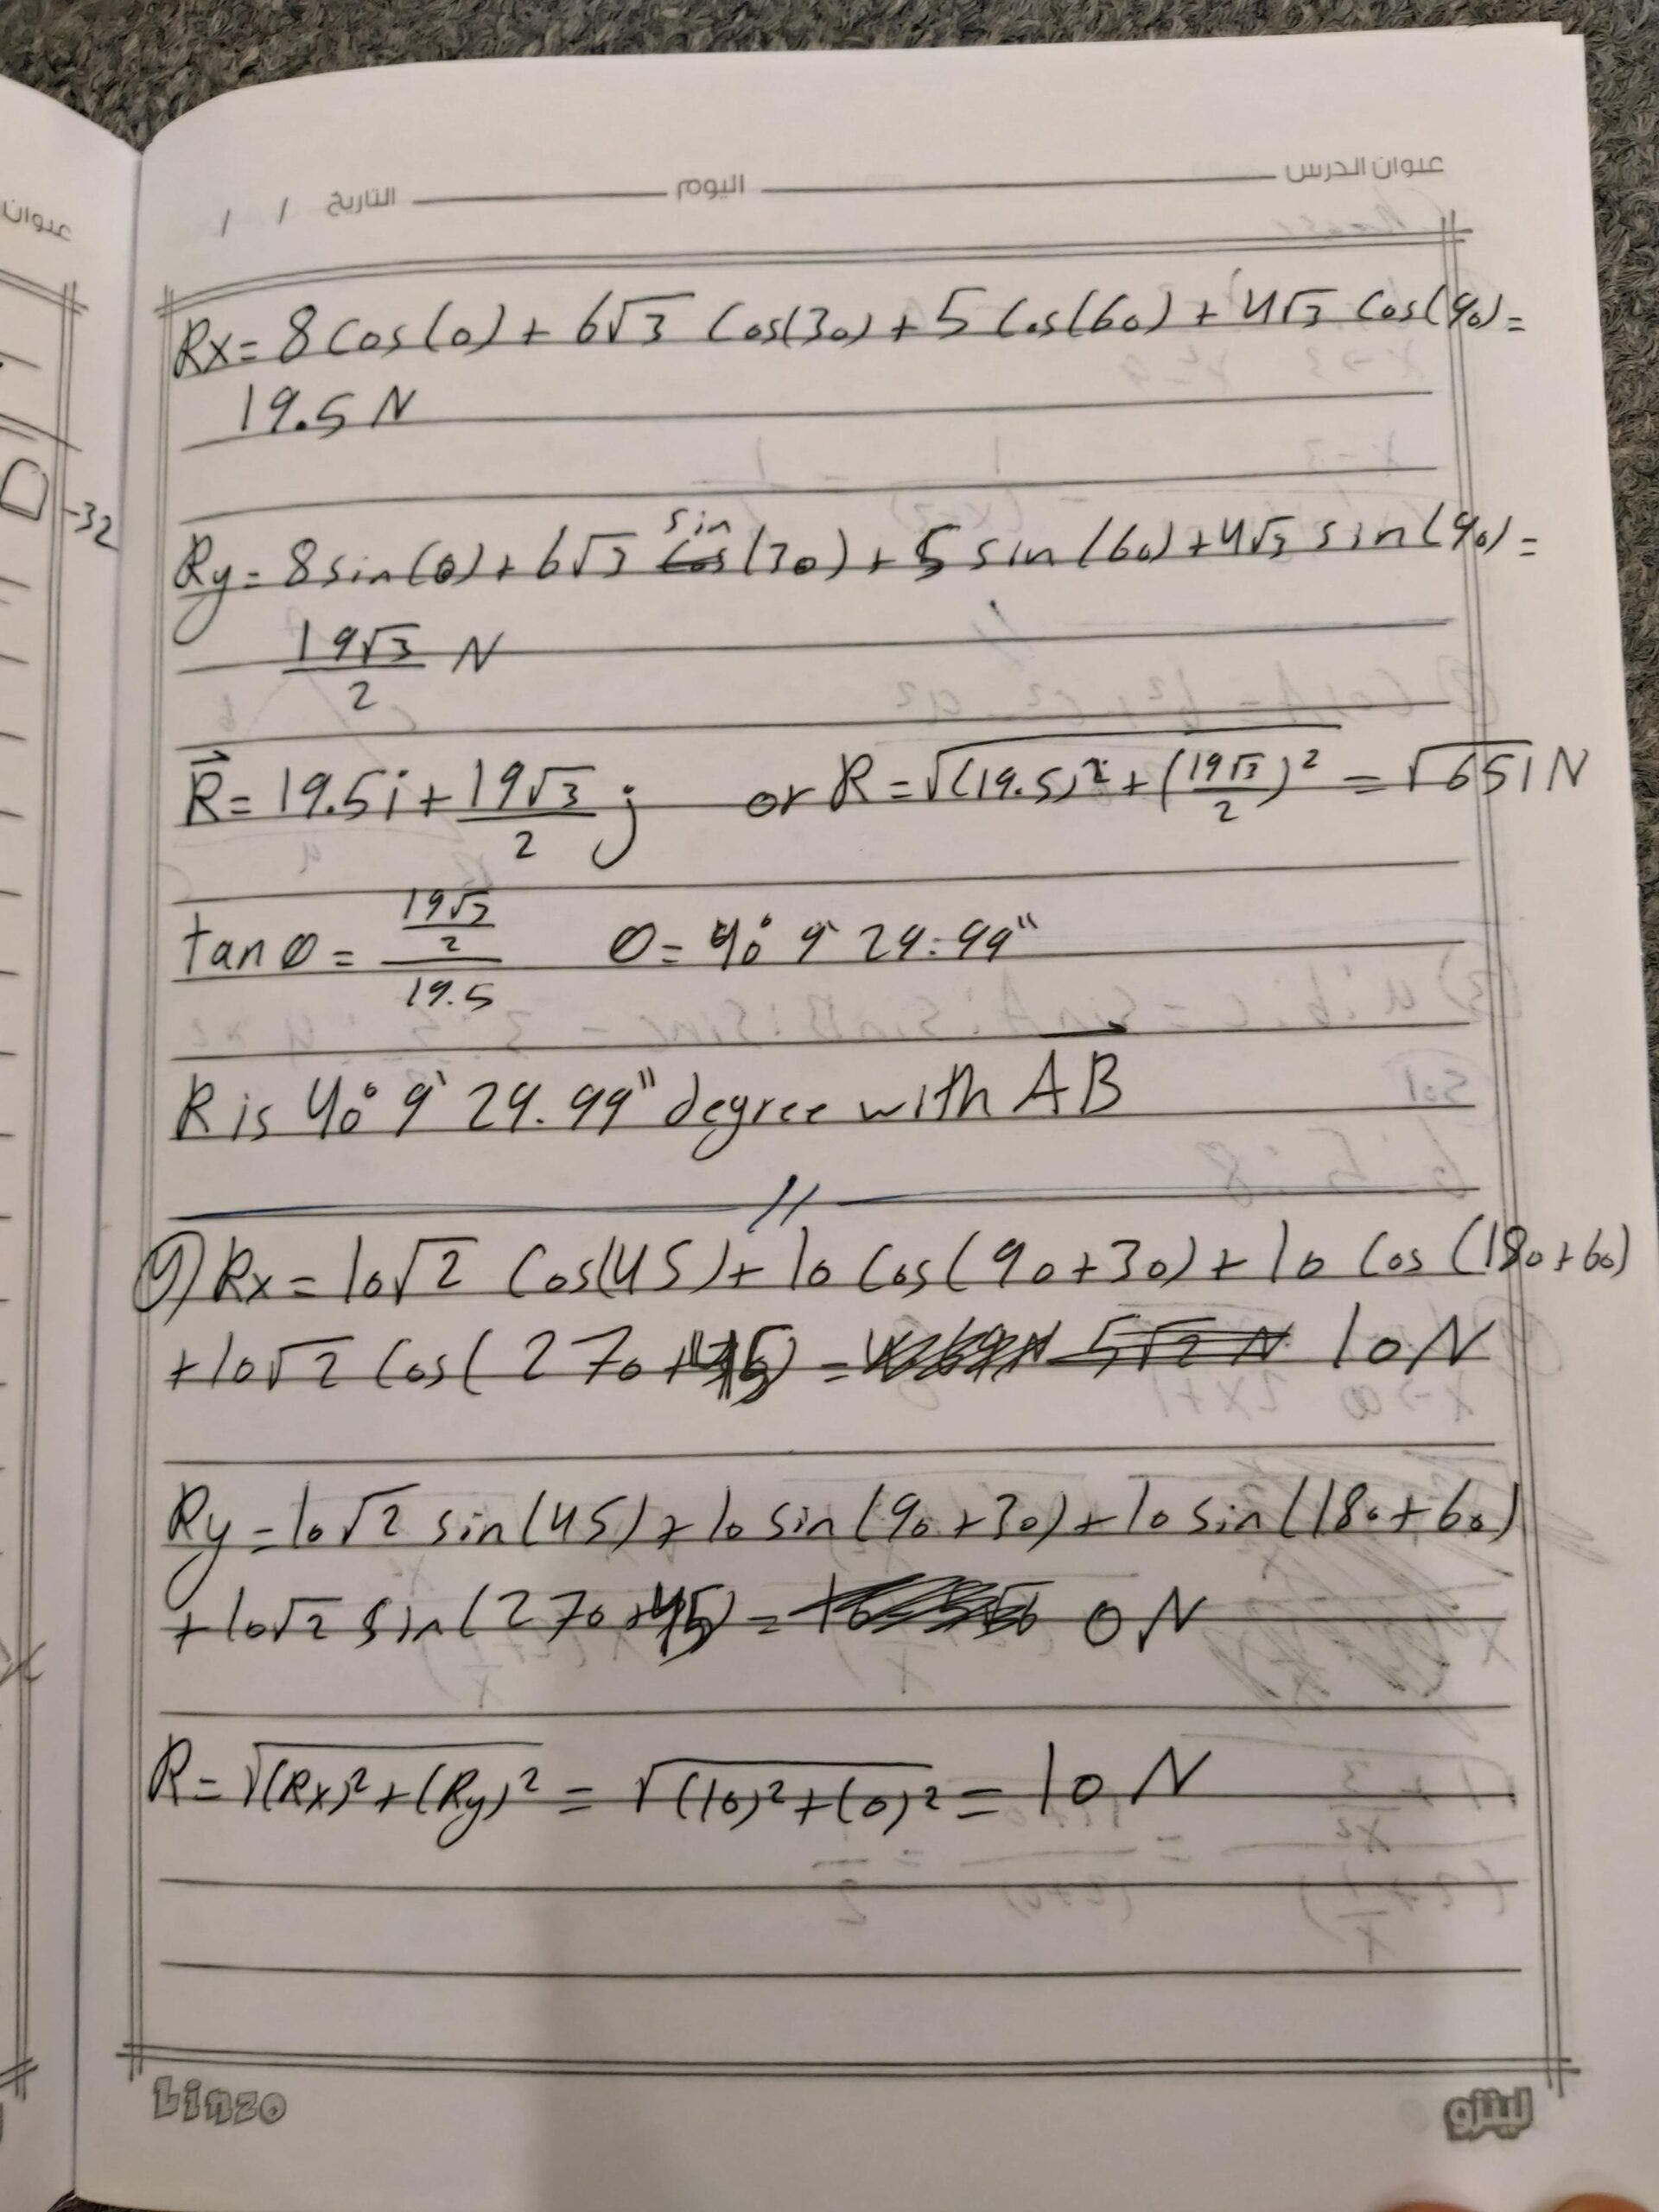 عنوان الدرس اليوم التاريخ / /
عنوان
Rx = 8 Cos(0) + 6√3 Cos(30) + 5 Cos(60) + 4√3 Cos(90) =
19.5 N
-32
sin
Ry = 8 sin(0) + 6√3 Cos (30) + 5 sin (60) + 4√3 sin(90) =
19√3/2 N
R⃗ = 19.5i + 19√3/2 j or R = √((19.5)² + (19√3/2)²) = √651 N
tan θ = (19√3/2)/19.5 θ = 40° 9' 24.99"
R is 40° 9' 24.99" degree with A͞B
//
9) Rx = 10√2 Cos(45) + 10 Cos(90+30) + 10 Cos (180+60)
+ 10√2 Cos(270+45) = 5√2 N 10 N
Ry = 10√2 sin(45) + 10 sin(90+30) + 10 sin(180+60)
+ 10√2 sin(270+45) = 0 N
R = √((Rx)² + (Ry)²) = √((10)² + (0)²) = 10 N
Linzo لينزو